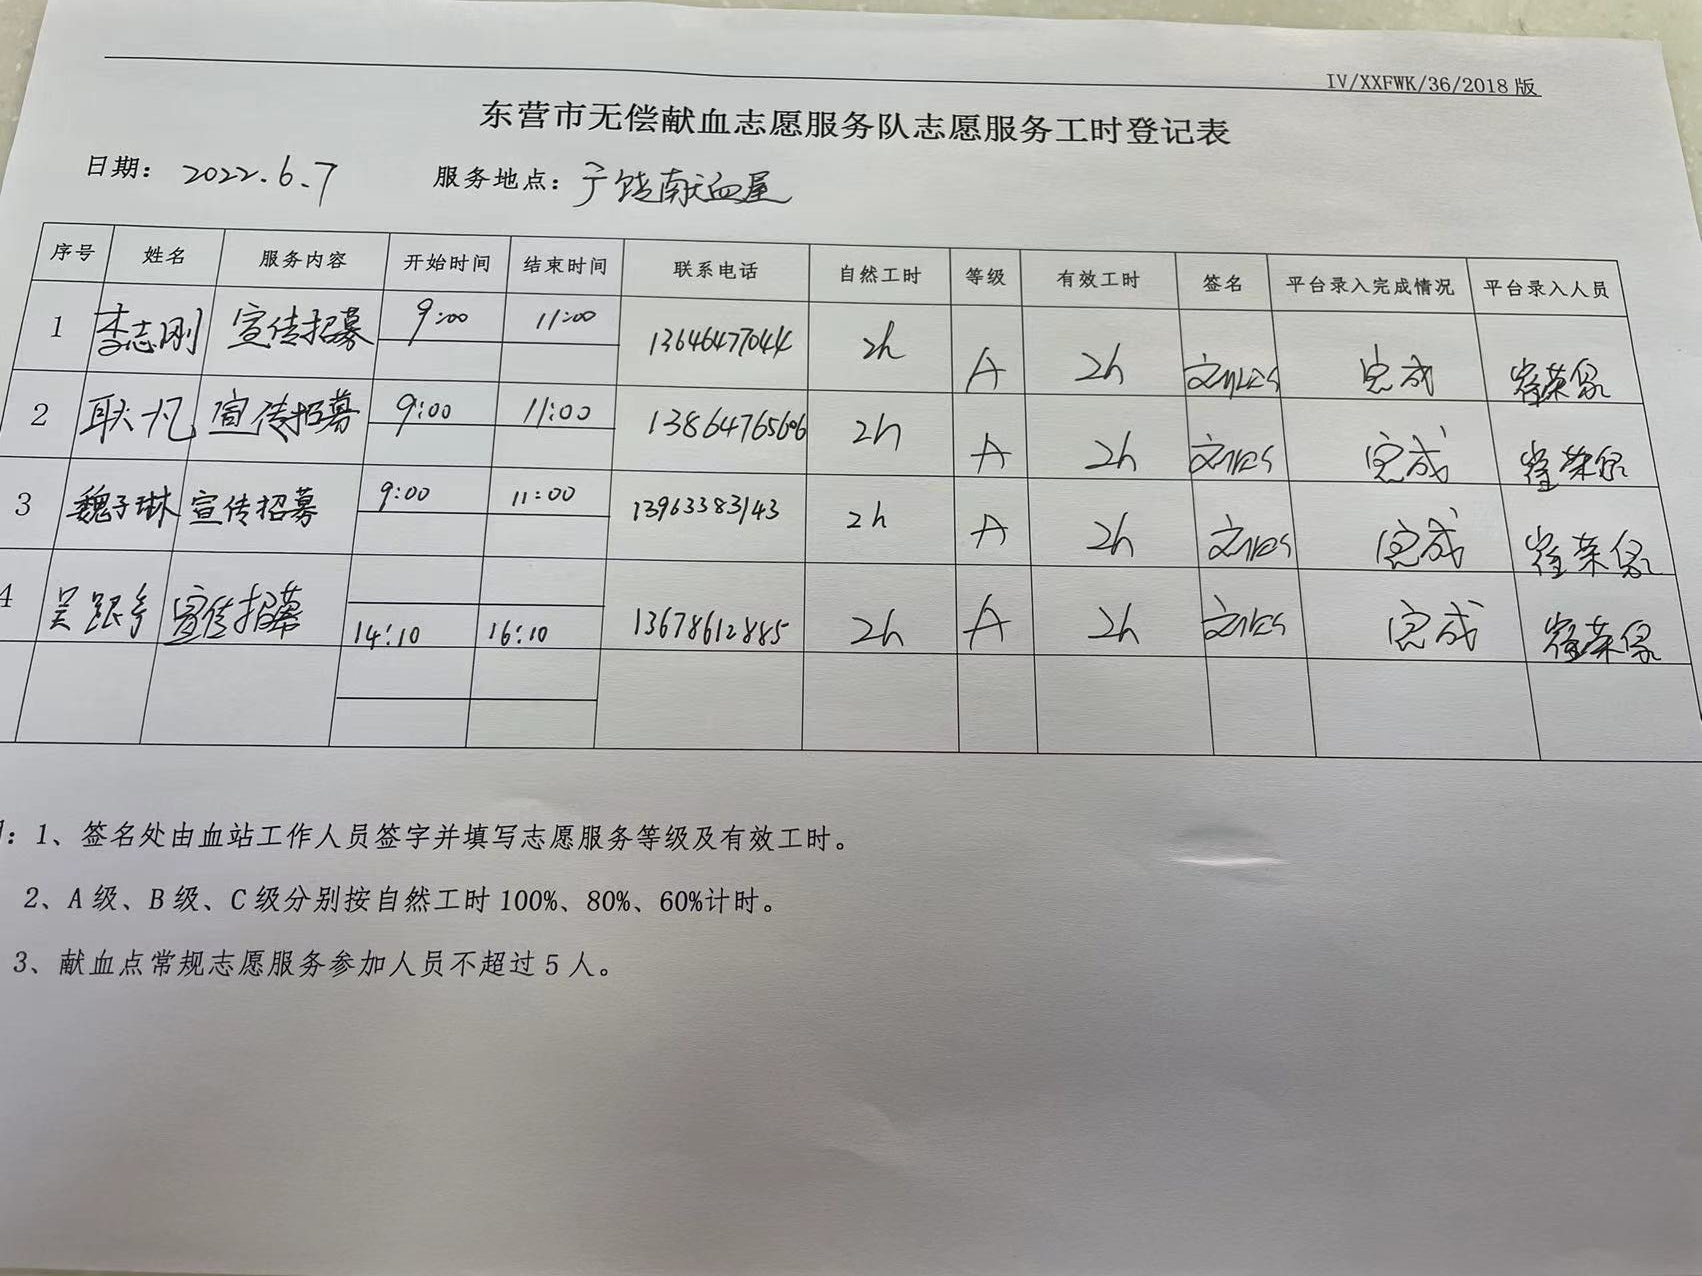 IV/XXFWK/36/2018 版
东营市无偿献血志愿服务队志愿服务工时登记表
日期： 2022.6.7 服务地点：广饶献血屋
序号 姓名 服务内容 开始时间 结束时间 联系电话 自然工时 等级 有效工时 签名 平台录入完成情况 平台录入人员
1 李志刚 宣传招募 9:00 11:00 13646477044 2h A 2h 完成
2 耿凡 宣传招募 9:00 11:00 13864765606 2h A 2h 完成
3 魏子琳 宣传招募 9:00 11:00 13963383143 2h A 2h 完成
4 宣传招募 14:10 16:10 13678612885 2h A 2h 完成
：1、签名处由血站工作人员签字并填写志愿服务等级及有效工时。
2、A 级、B 级、C 级分别按自然工时 100%、80%、60%计时。
3、献血点常规志愿服务参加人员不超过 5 人。